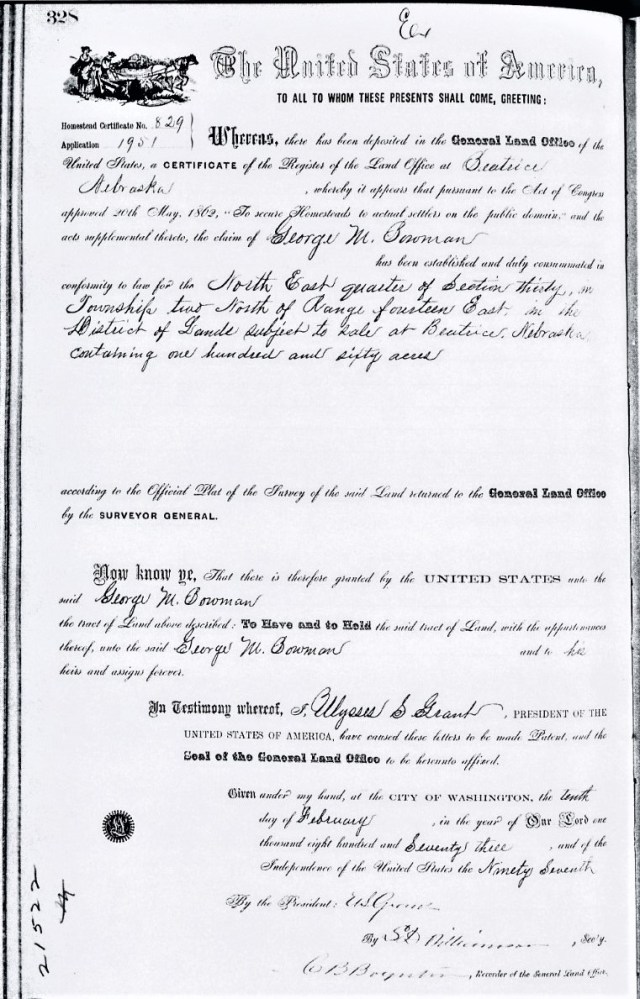 328
The United States of America,
TO ALL TO WHOM THESE PRESENTS SHALL COME, GREETING:
Homestead Certificate No. 829
Application 1951
Whereas, there has been deposited in the General Land Office of the
United States, a CERTIFICATE of the Register of the Land Office at Beatrice
Nebraska , whereby it appears that pursuant to the Act of Congress
approved 20th May, 1862, "To secure Homesteads to actual settlers on the public domain," and the
acts supplemental thereto, the claim of George M. Bowman
has been established and duly consummated in
conformity to law for the North East quarter of Section thirty, in
Township two North of Range fourteen East, in the
District of Lands subject to Sale at Beatrice, Nebraska
containing one hundred and sixty acres
according to the Official Plat of the Survey of the said Land returned to the General Land Office
by the SURVEYOR GENERAL.
Now know ye, That there is therefore granted by the UNITED STATES unto the
said George M. Bowman
the tract of Land above described: To Have and to Hold the said tract of Land, with the appurtenances
thereof, unto the said George M. Bowman and to his
heirs and assigns forever.
In Testimony whereof, I, Ulysses S Grant , PRESIDENT OF THE
UNITED STATES OF AMERICA, have caused these letters to be made Patent, and the
Seal of the General Land Office to be hereunto affixed.
Given under my hand, at the CITY OF WASHINGTON, the tenth
day of February , in the year of Our Lord one
thousand eight hundred and Seventy three , and of the
Independence of the United States the Ninety Seventh
By the President: U.S. Grant
By , Sec'y.
C B Boynton , Recorder of the General Land Office.
21522